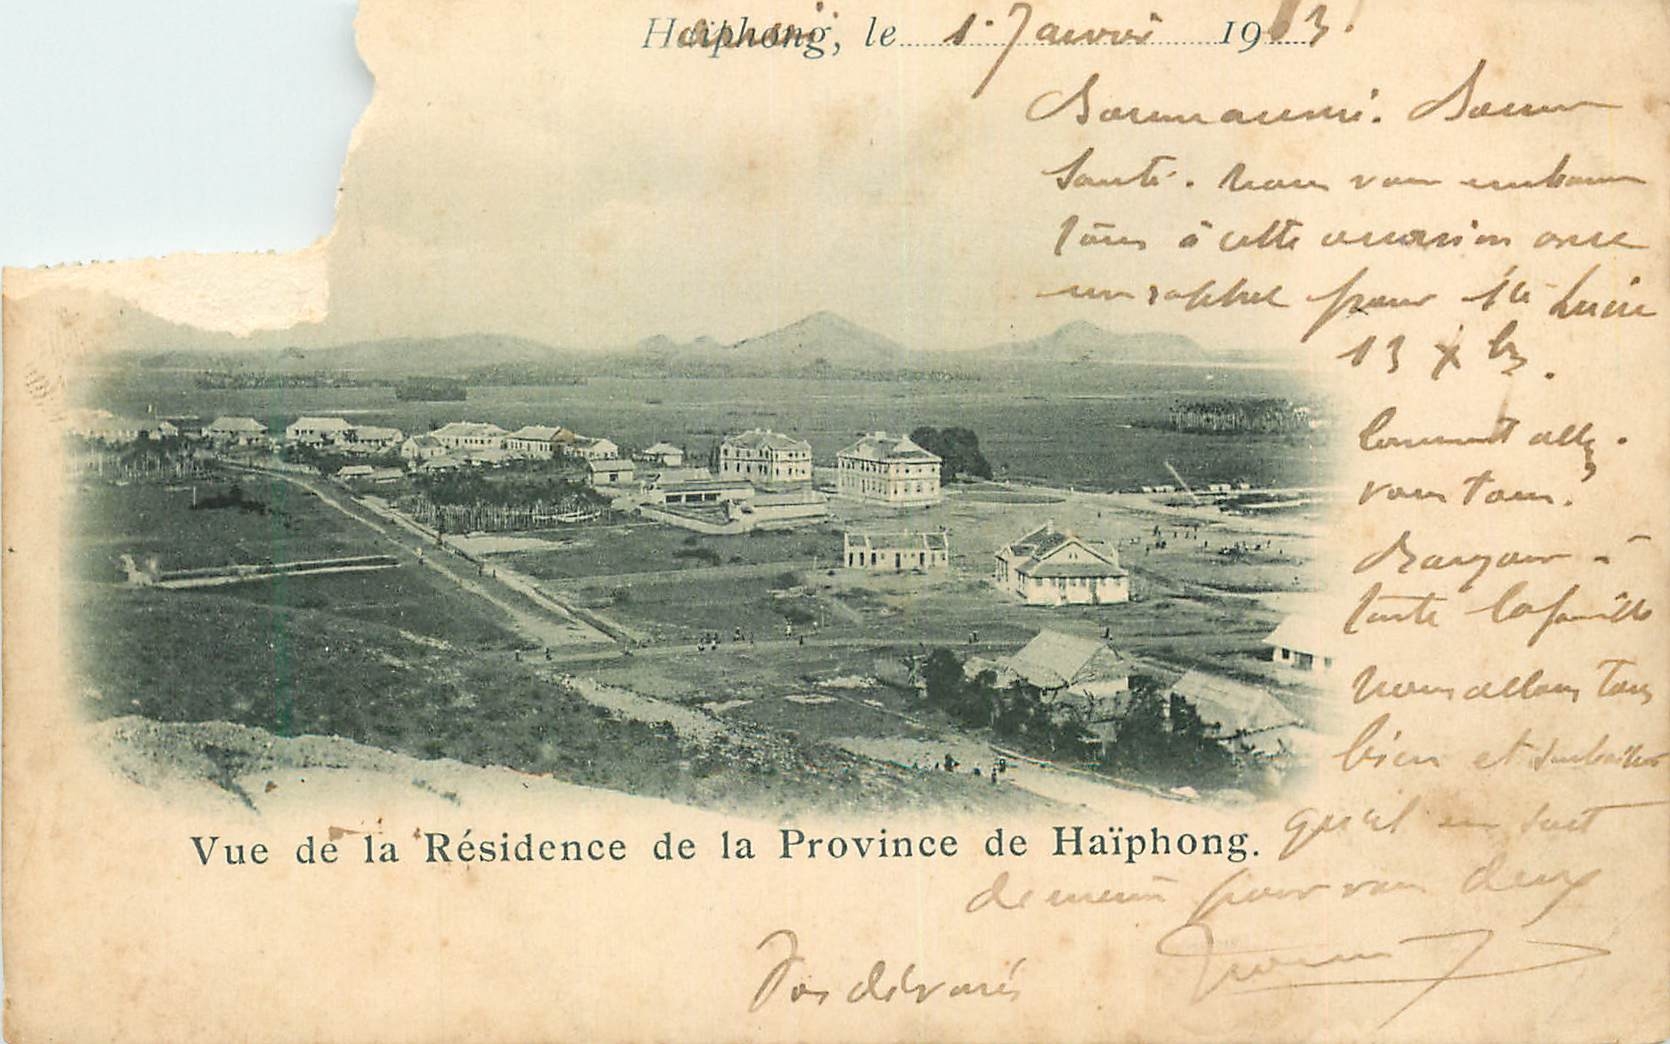 Haïphong, le 1er Janvier 1903.
Bonne année. Bonne
Santé. Nous vous embrassons
tous à cette occasion avec
un rappel pour Ste Lucie
13 Xbre.
Comment allez
vous tous.
Bonjour à
toute la famille
Nous allons tous
bien et souhaitons
qu'il en soit
de même pour vous deux
Vos dévoués
Vue de la Résidence de la Province de Haïphong.